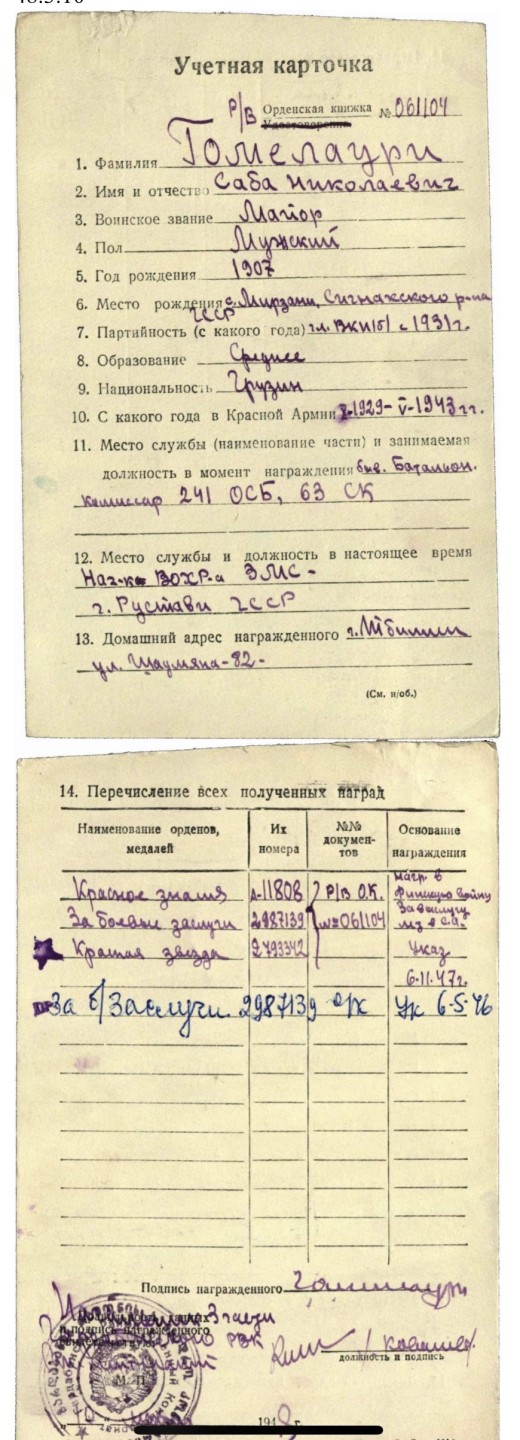 Учетная карточка
Р/В Орденская книжка № 061104
Удостоверение
1. Фамилия Гомелаури
2. Имя и отчество Саба Николаевич
3. Воинское звание Майор
4. Пол Мужский
5. Год рождения 1907
6. Место рождения с. Мирзани, Сигнахского р-на
ГССР
7. Партийность (с какого года) чл. ВКП(б) с 1931 г.
8. Образование Среднее
9. Национальность Грузин
10. С какого года в Красной Армии X-1929- V-1943 гг.
11. Место службы (наименование части) и занимаемая
должность в момент награждения быв. Батальон.
комиссар 241 ОСБ, 63 СК
12. Место службы и должность в настоящее время
Нач-ка ВОХР-а ЗМС-
г. Рустави ГССР
13. Домашний адрес награжденного г. Тбилиси
ул. Шаумяна-82-
(См. н/об.)
14. Перечисление всех полученных наград
Наименование орденов, медалей
Их номера
№№ документов
Основание награждения
Красное знамя 11808 Р/В О.К. Нагр. в финскую войну
За боевые заслуги 2987139 №061104 За выслугу
Красная звезда 2793342 Указ
6.11.47г.
За б/Заслуги 2987139 Ук 6-5-46
Подпись награжденного
подпись награжденного
РВК
должность и подпись
М. П.
194 г.